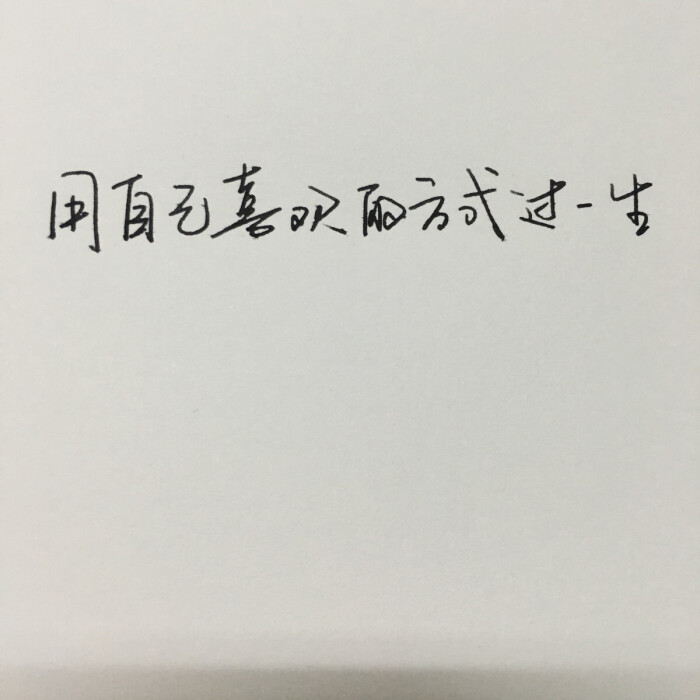 用自己喜欢的方式过一生